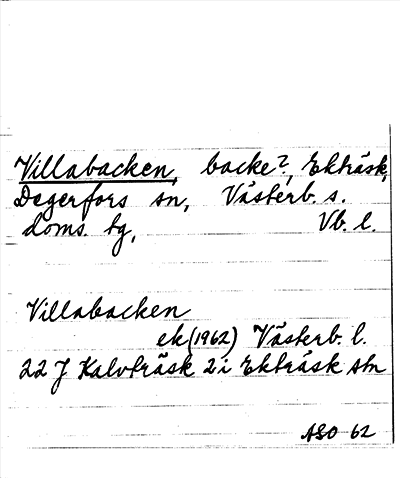 Villabacken, backe?, Ekträsk,
Degerfors sn, Västerb. s.
doms. tg, Vb. l.
Villabacken
ek (1962) Västerb. l.
22 J Kalvträsk 2 i Ekträsk stn
ASO 62